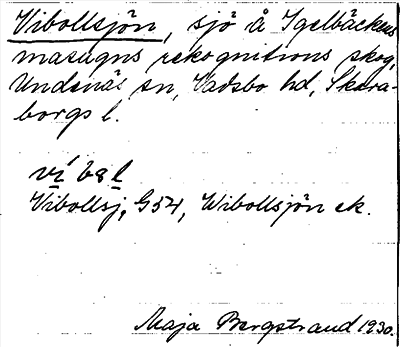 Vibollsjön, sjö å Igelbäckens
masugns rekognitions skog,
Undenäs sn, Vadsbo hd, Skara-
borgs l.
Vibollsj, G54, Wibollsjön ek.
Maja Bergstrand 1930.